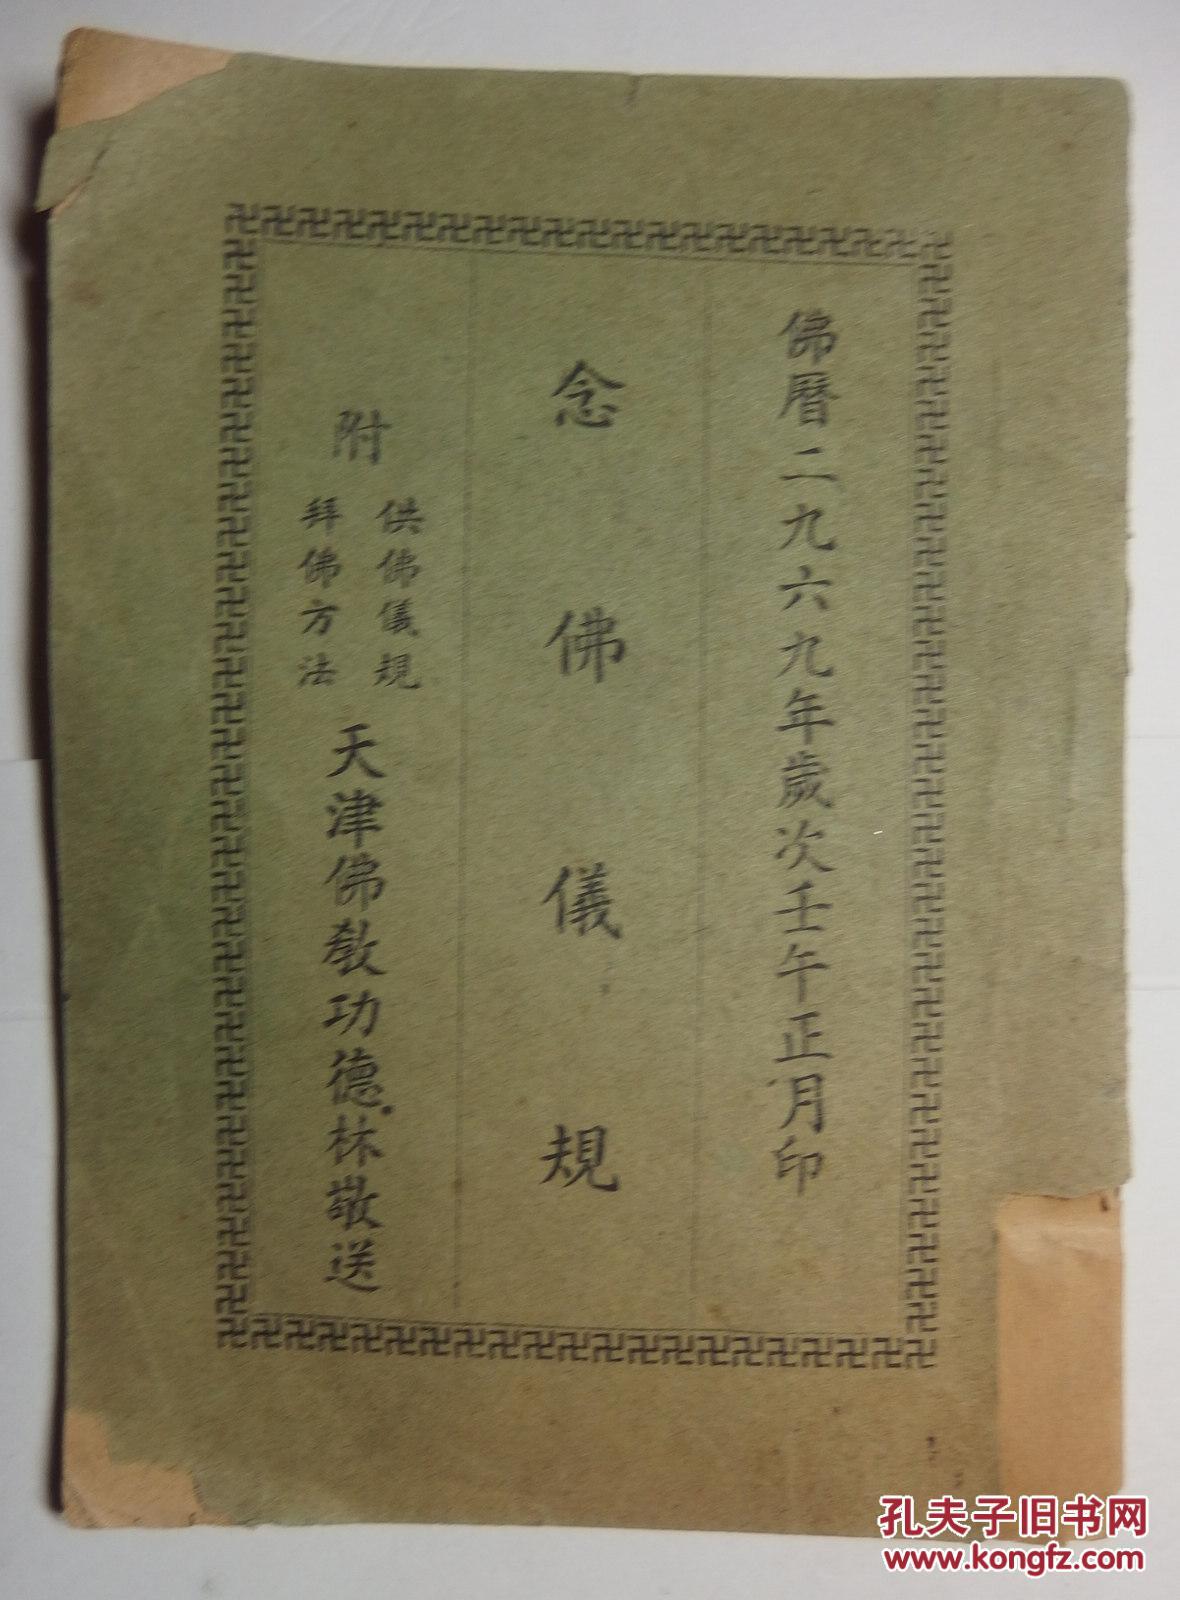 佛曆二九六九年歲次壬午正月印
念佛儀規
附
供佛儀規
拜佛方法
天津佛教功德林敬送
孔夫子旧书网
www.kongfz.com